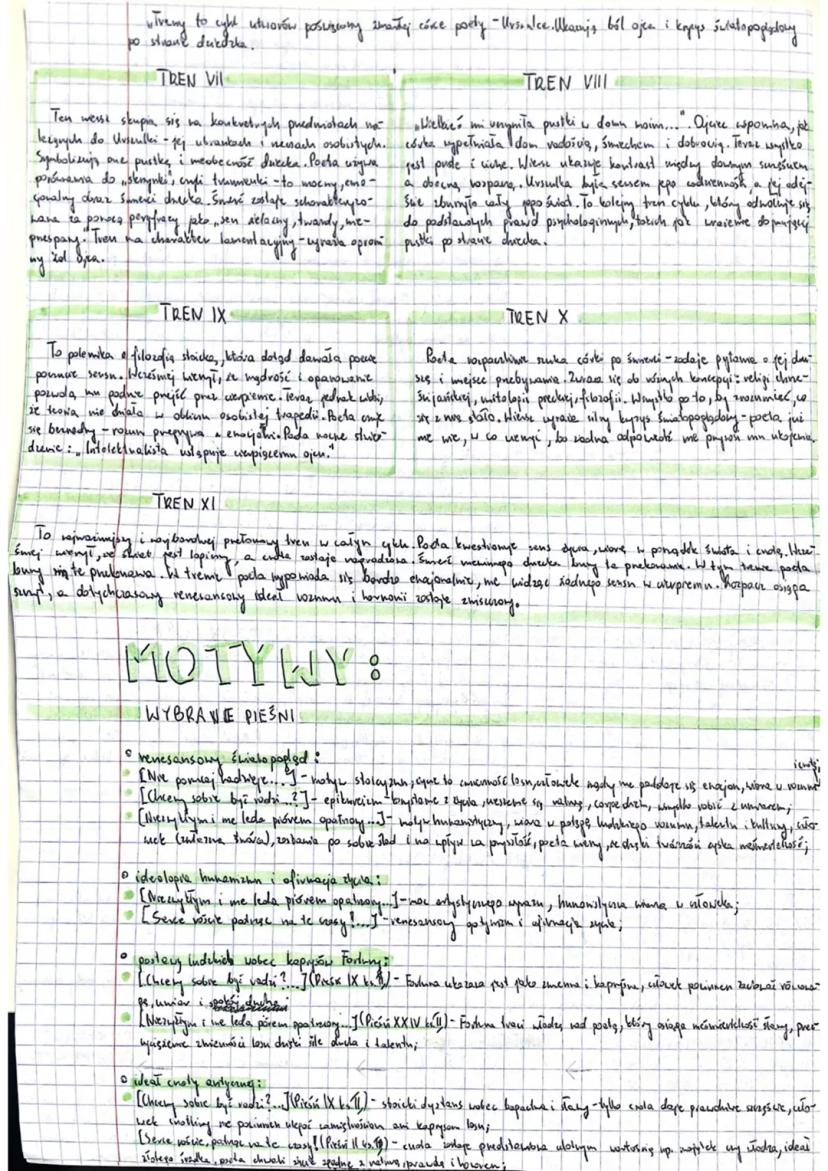 „Treny to cykl utworów poświęcony zmarłej córce poety - Urszulce. Ukazują ból ojca i kryzys światopoglądowy
po stracie dziecka.
TREN VII
Ten wiersz skupia się na konkretnych przedmiotach na-
leżących do Urszulki - jej ubrankach i rzeczach osobistych.
Symbolizują one pustkę i nieobecność dziecka. Poeta używa
porównania do „skrzynki", czyli trumienki - to mocny, emo-
cjonalny obraz śmierci dziecka. Śmierć zostaje scharakteryzo-
wana za pomocą peryfrazy jako „sen żelazny, twardy, nie-
przespany." Tren ma charakter lamentacyjny - wyraża ogrom-
ny żal ojca.
TREN VIII
„Wielkieś mi uczyniła pustki w domu moim...". Ojciec wspomina, jak
córka wypełniała dom radością, śmiechem i dobrocią. Teraz wszystko
jest puste i ciche. Wiersz ukazuje kontrast między dawnym szczęściem
a obecną rozpaczą. Urszulka była sensem jego codzienności, a jej odej-
ście zburzyło cały jego świat. To kolejny tren cyklu, który odwołuje się
do podstawowych prawd psychologicznych, takich jak wrażenie dojmującej
pustki po stracie dziecka.
TREN IX
To polemika z filozofią stoicką, która dotąd dawała poecie
poczucie sensu. Wcześniej wierzył, że mądrość i opanowanie
pozwolą mu godnie przejść przez cierpienie. Teraz jednak widzi,
że teoria nie działa w obliczu osobistej tragedii. Poeta czuje
się bezradny - rozum przegrywa z emocjami. Pada mocne stwier-
dzenie: „Intelektualista ustępuje cierpiącemu ojcu."
TREN X
Poeta rozpaczliwie szuka córki po śmierci - zadaje pytania o jej du-
szę i miejsce przebywania. Zwraca się do różnych koncepcji: religii chrze-
ścijańskiej, mitologii greckiej, filozofii. Wszystko po to, by zrozumieć, co
się z nią stało. Wiersz wyraża silny kryzys światopoglądowy - poeta już
nie wie, w co wierzyć, bo żadna odpowiedź nie przynosi mu ukojenia.
TREN XI
To najważniejszy i najbardziej przełomowy tren w całym cyklu. Poeta kwestionuje sens życia, wiarę w porządek świata i cnotę. Wcze-
śniej wierzył, że świat jest logiczny, a cnota zostaje nagrodzona. Śmierć niewinnego dziecka burzy te przekonania. W tym trenie poeta
burzy się te przekonania. W trenie poeta wypowiada się bardzo emocjonalnie, nie widząc żadnego sensu w cierpieniu. Rozpacz osiąga
szczyt, a dotychczasowy renesansowy ideał rozumu i harmonii zostaje zniszczony.
MOTYWY:
WYBRANE PIEŚNI
renesansowy światopogląd:
[Nie porzucaj nadzieje...] - motyw stoicyzmu, czyni to zmienność losu, człowiek mądry nie poddaje się emocjom, wiara w rozum
i cnotę;
[Chcemy sobie być radzi...?] - epikureizm - korzystanie z życia, cieszenie się chwilą, carpe diem, wszystko robić z umiarem;
[Niezwykłym i nie leda piórem opatrzony...] - motyw humanistyczny, wiara w potęgę ludzkiego rozumu, talentu i kultury, czło-
wiek (zwłaszcza twórca), zostawia po sobie ślad i ma wpływ na przyszłość, poeta wierzy, że dzięki twórczości zyska nieśmiertelność;
ideologia humanizmu i afirmacja życia:
[Niezwykłym i nie leda piórem opatrzony...] - moc artystycznego wyrazu, humanistyczna wiara w człowieka;
[Serce roście patrząc na te czasy!...] - renesansowy optymizm i afirmacja życia;
postawy ludzkie wobec kaprysów Fortuny:
[Chcemy sobie być radzi?...] (Pieśń IX ks. I) - Fortuna ukazana jest jako zmienna i kapryśna, człowiek powinien zachować równowa-
gę, umiar i spokój ducha;
[Niezwykłym i nie leda piórem opatrzony...] (Pieśń XXIV ks. II) - Fortuna traci władzę nad poetą, który osiąga nieśmiertelność sławy, prze-
zwyciężenie zmienności losu dzięki sile ducha i talentu;
ideał cnoty antycznej:
[Chcemy sobie być radzi?...] (Pieśń IX ks. I) - stoicki dystans wobec bogactwa i sławy - tylko cnota daje prawdziwe szczęście, czło-
wiek cnotliwy nie powinien ulegać namiętnościom ani kaprysom losu;
[Serce roście, patrząc na te czasy!] (Pieśń II ks. I) - cnota zostaje przedstawiona ważniejszą wartością np. majątek czy władza, ideał
złotego środka, poeta chwali życie zgodne z naturą, prawdą i honorem;